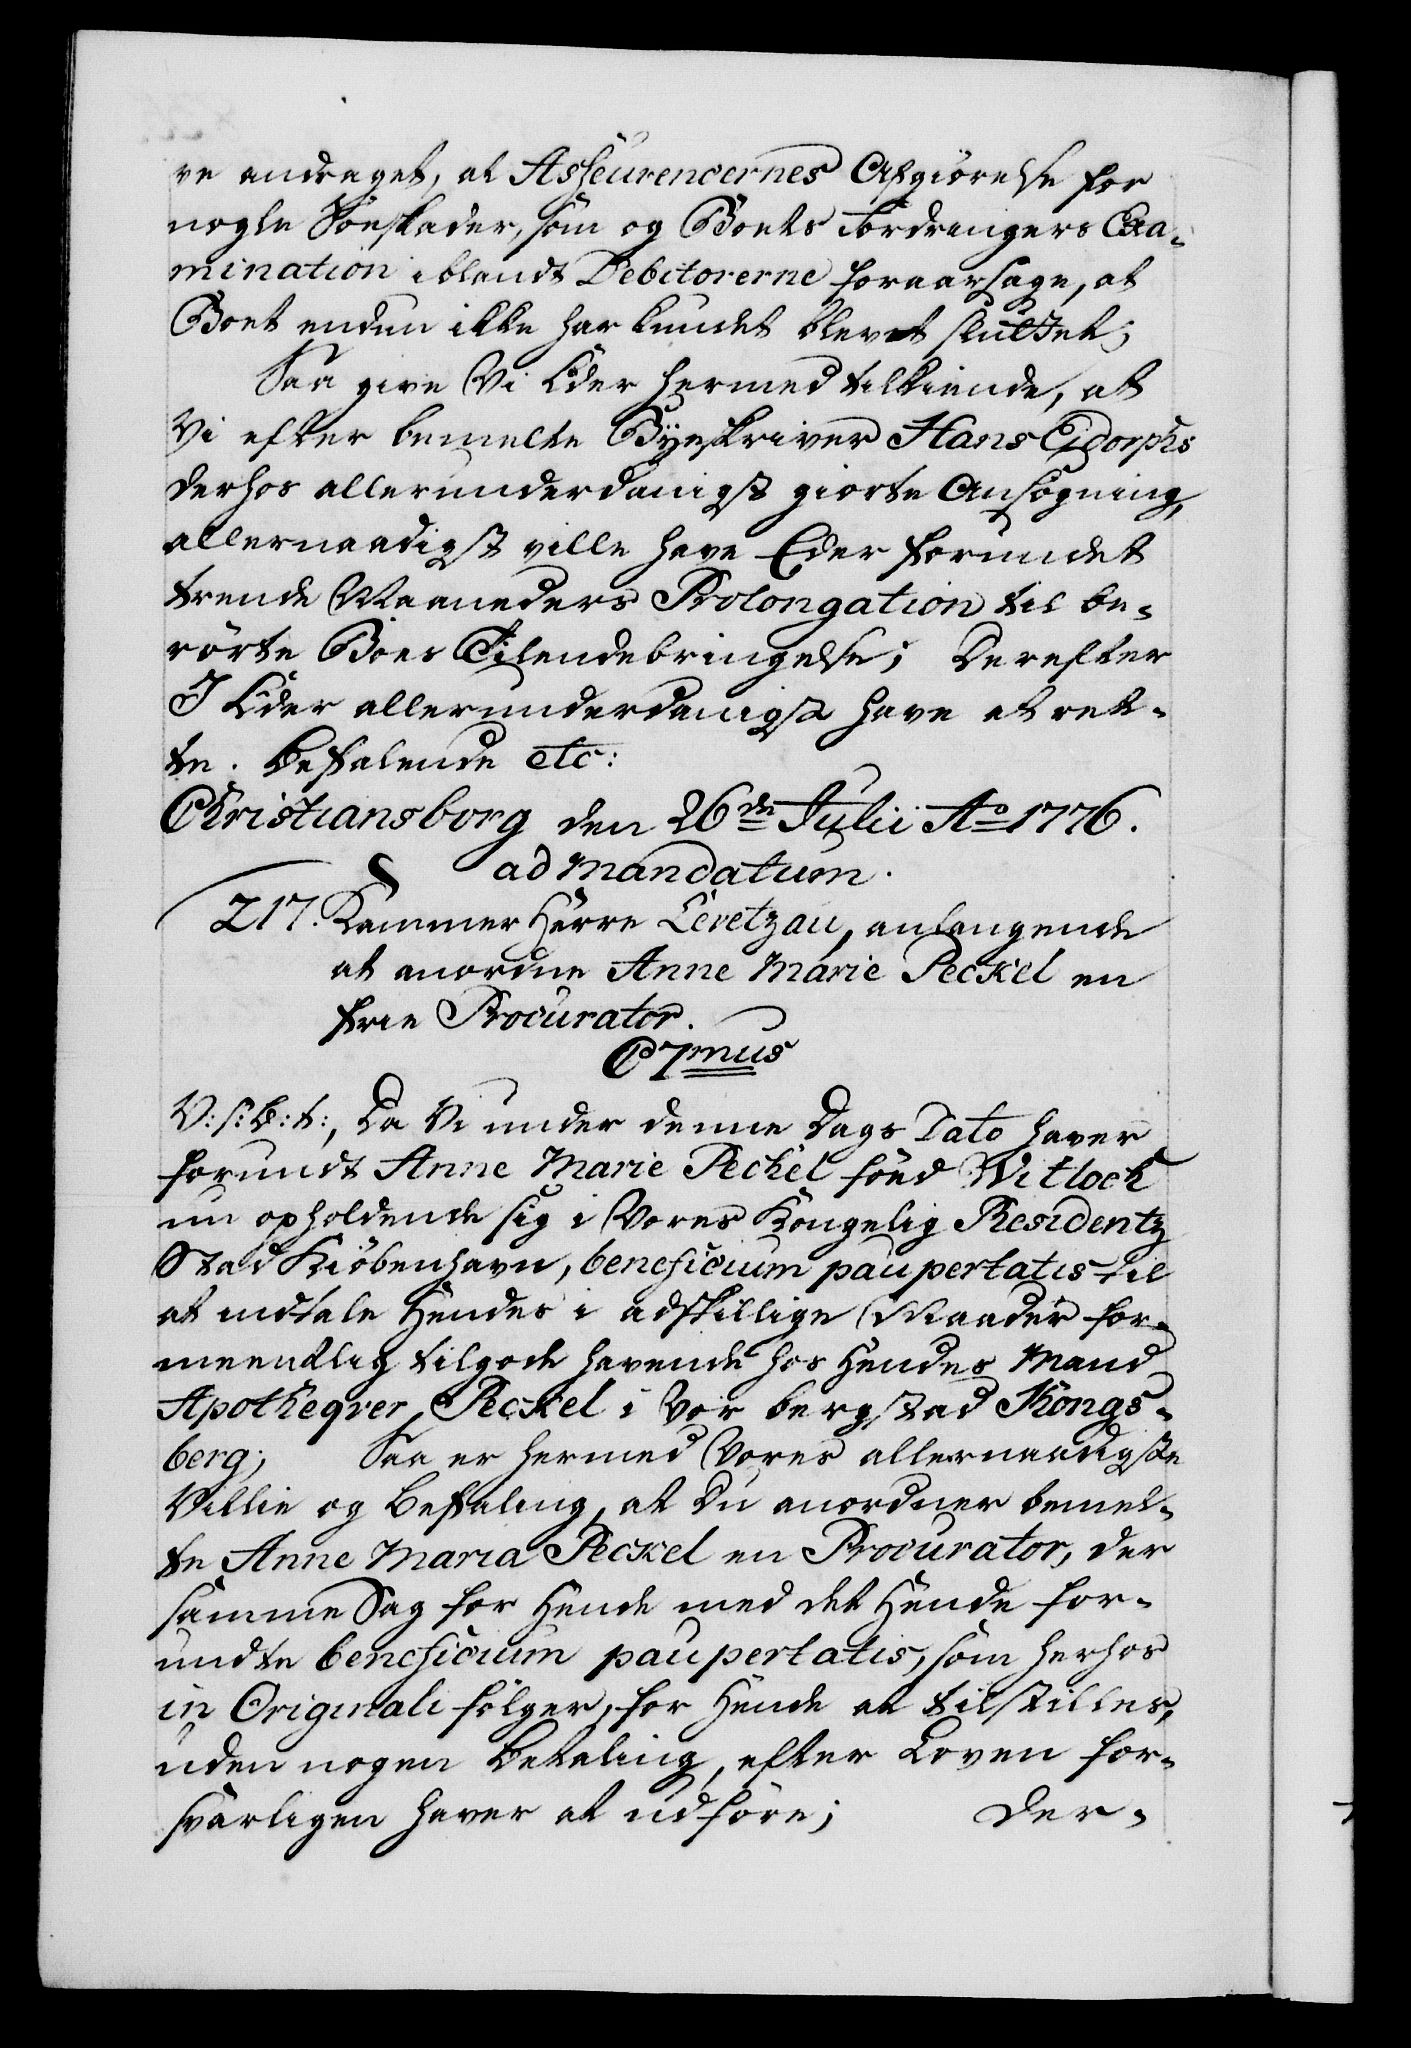 re andraget, at Asseurencernes Afgiörelse for
nogle Söeskader, som og Boets Fordringers Exa-
mination iblandt Debitorerne foraarsage, at
Boet endnu ikke har kundet blevet sluttet;
Saa give Vi Eder hermed tilkiende, at
Vi efter bemelte Byeskriver Hans Eidorphs
derhos allerunderdanigst giorte Ansögning,
allernaadigst ville have Eder forundet
trende Maaneders Prolongation til be-
rörte Boes Tilendebringelse; Derefter
I Eder allerunderdanigst have at ret-
te. Befalende etc:
Christiansborg den 26de Julii Ao 1776.
ad Mandatum.
217. Kammer Herre Levetzau, anlangende
at anordne Anne Marie Peckel en
frie Procurator.
C7mus
V:s:B:t:, Da Vi under denne Dags Dato haver
forundt Anne Marie Peckel föed Witlock
nu opholdende sig i Vores Kongelig Residentz
Stad Kiöbenhavn, beneficium paupertatis til
at indtale Hendes i adskillige Maader for-
meendtlig tilgode havende hos Hendes Mand
Apotheqver Peckel i Vor bergstad Kongs-
berg; Saa er hermed Vores allernaadigste
Villie og Befaling, at Du anordner bemel-
te Anne Maria Peckel en Procurator, der
samme Sag for Hende med det Hende for-
undte beneficium paupertatis, som herhos
in Originali fölger, for Hende at tilstilles,
uden nogen Betaling, efter Loven for-
svarligen haver at udföre; Der-